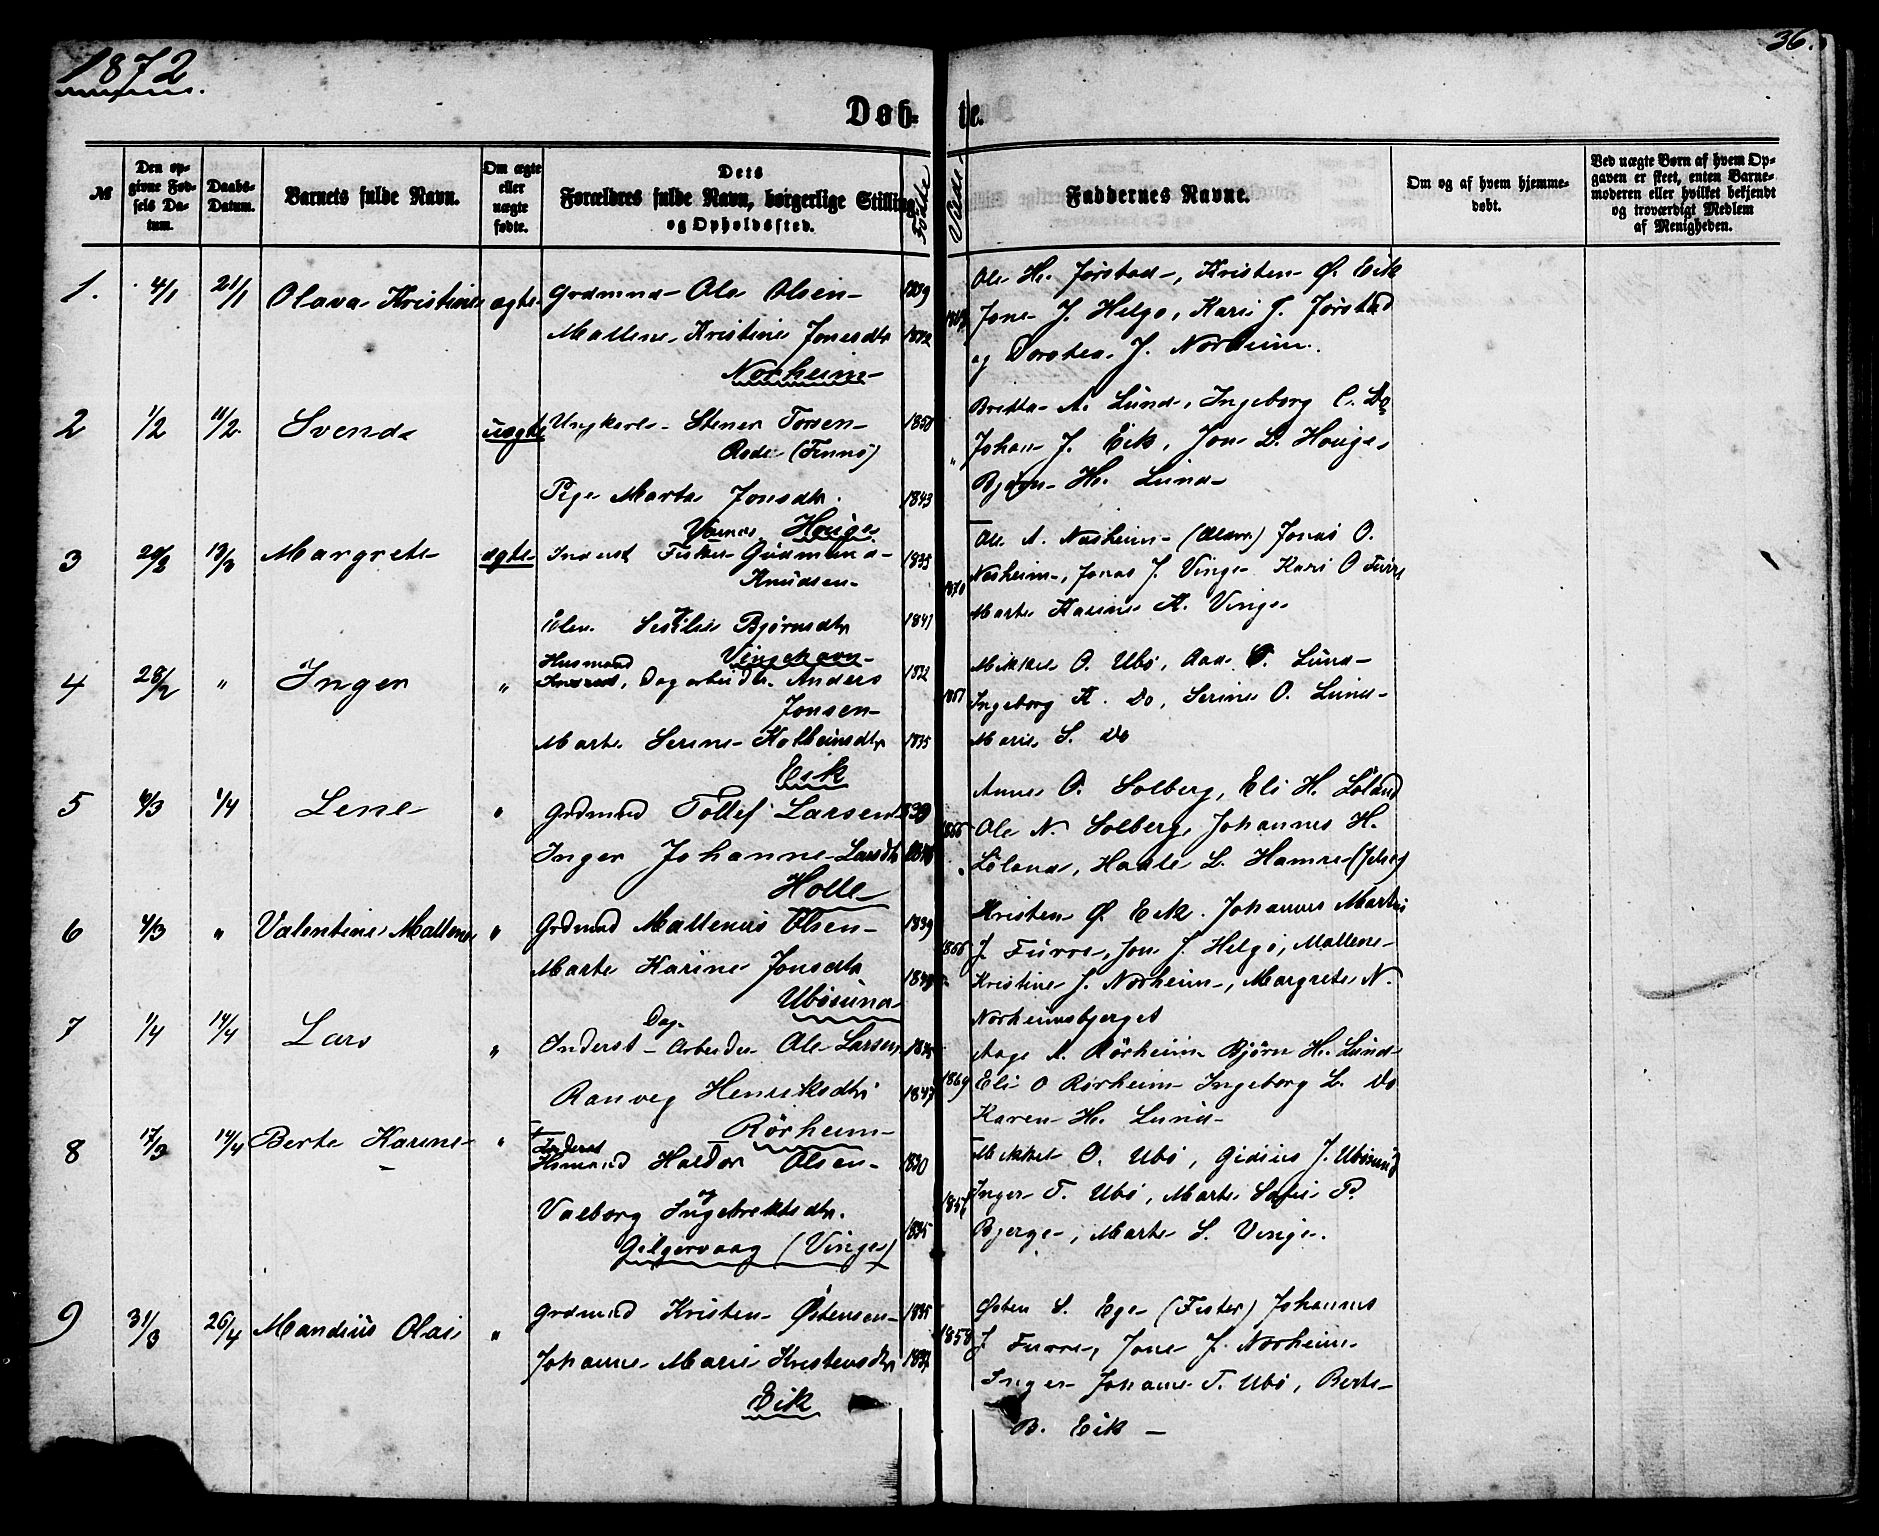 1872.
36.
Døb-te.
№
Den opgivne Fødsels Datum.
Daabs-Datum.
Barnets fulde Navn.
Om ægte eller uægte fødte.
Dets Forældres fulde Navn, borgerlige Stilling og Opholdssted.
Fødte
Faddernes Navne.
Om og af hvem hjemmedøbt.
Ved uægte Børn af hvem Opgaven er skeet, enten Barnemoderen eller hvilket bekjendt og troværdigt Medlem af Menigheden.
1. 4/1 21/1 Olava Kristine ægte Grdmnd Ole Olsen 1839
Mallene Kristine Jonesdtr 1842
Norheim
Ole H. Jørstad, Kristen Ø. Eik
Jone J. Helgø, Kari J. Jørstad
og Dorthea J. Norheim.
2 1/2 11/2 Svend uægte Ungkarl Stener Torsen 1850
(Finnø)
Pige Marta Jonsdtr. 1843
Houge
Britta A. Lund, Ingeborg C. Do
Johan J. Eik, Jon L. Houge
Bjørn H. Lund
3 20/2 13/3 Margrete ægte Inderst Fisker Gudmund 1835
Knudsen
Bjørnsdtr 1841
Vingehavn
1870
Ole A. Nesheim Jonas O.
Nesheim, Jonas J. Vinge Kari O Furre
Marte Karine K. Vinge
4 28/2 " Inger " Husmand
Dagarbeider Anders 1832
Jonsen
Marte Serine Kolbeinsdtr 1835
Eik
Mikkel O. Ubø, Aad O. Lund
Ingeborg K. Do, Serine O. Lund
Marie S. Do
5 1/4 Lene " Grdmand Tollef Larsen
Inger Johanne Larsdtr
Holle
1866
Anne O. Solberg, Eli H. Løland
Ole N. Solberg, Johannes H.
Løland, L. Hamre (Jelse)
6 4/3 " Valentine Mallene " Grdmnd Mallenius Olsen 1839
Marte Karine Jonsdtr
Ubøsund
1866
Kristen Ø Eik. Johannes Martin
J. Furre, Jon J. Helgø, Mallene
Kristine J. Norheim, Margrete N.
Norheimsbjerget
7 1/4 14/4 Lars " Inderst Dag-Arbeider Ole Larsen
Ranveg Henriksdtr 1847
Rørheim
1869
Aage A. Rørheim Bjørn H. Lund
Eli O Rørheim Ingeborg L. Do
Karen H. Lund
8 17/3 14/4 Berte Karine " Inderst
Haldor Olsen 1830
Valborg Ingebrektsdtr. 1835
Gilgervaag (Vinge)
Mikkel O. Ubø, Gidius J. Ubøsund
Inger T. Ubø, Marte Sofie P.
Bjerge, Marte S. Vinge.
9 31/3 26/4 Mandius Olai " Grdmnd Kristen Østensen 1835
Johanne Marie Kristensdtr
Eik
1858
Østen S. Ege (Fister) Johannes
J Furre, Jone J. Norheim
Inger Johanne T. Ubø, Berte
B. Eik